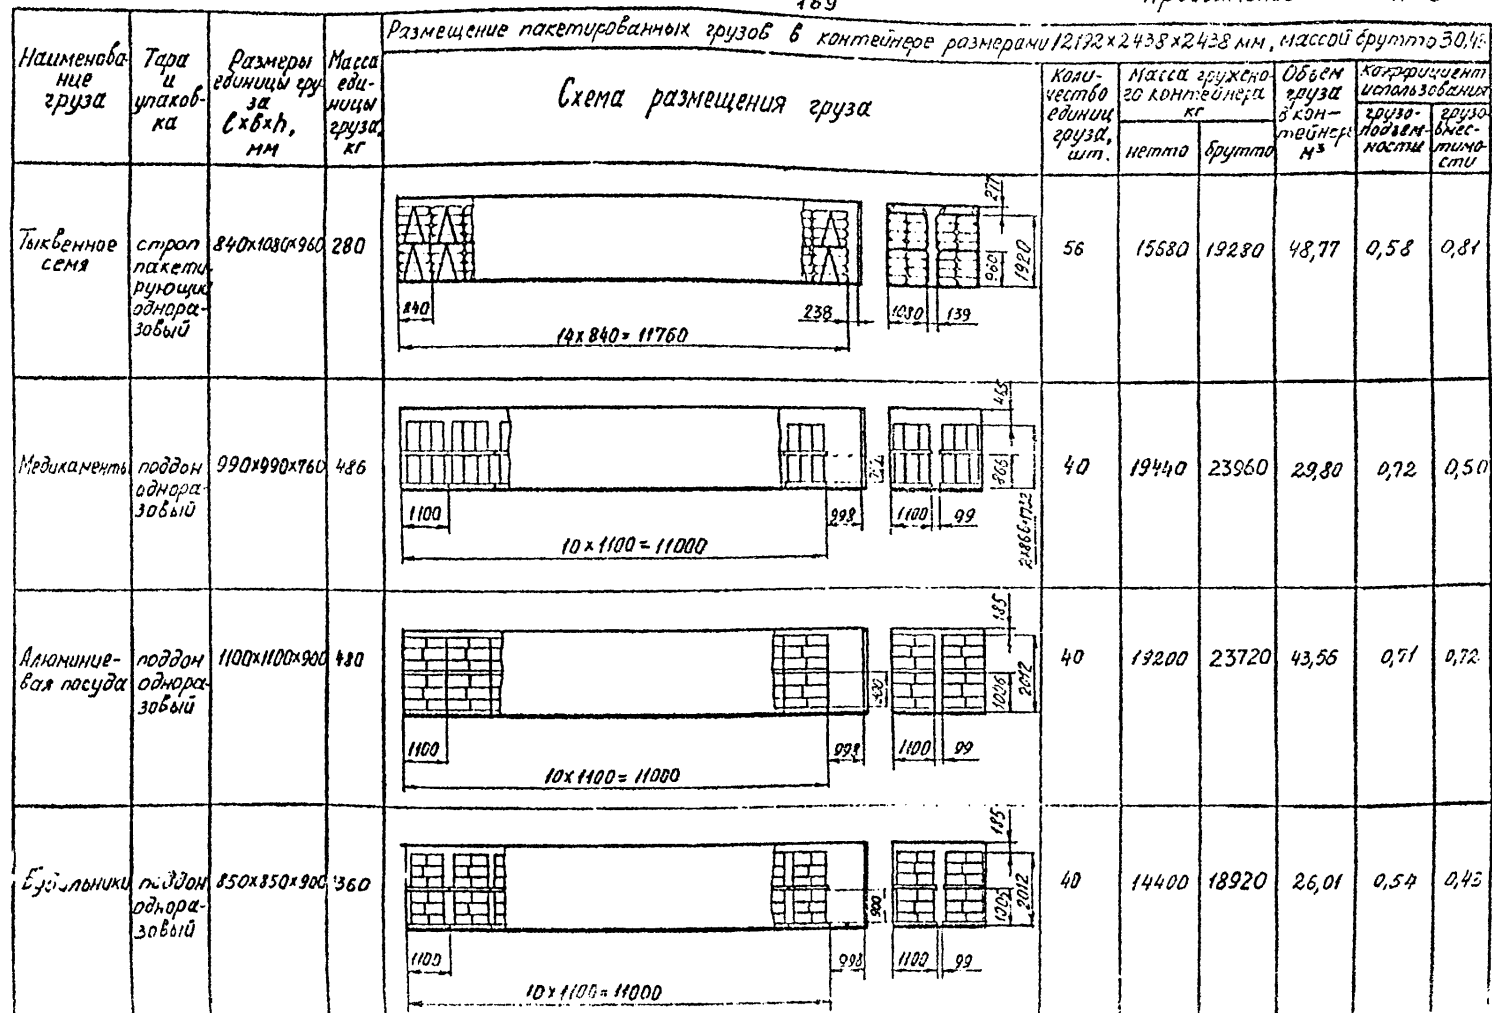 169
Размещение пакетированных грузов в контейнере размерами 12192×2438×2438 мм, массой брутто 30,4
Наименова
ние
груза
Тара
и
упаков-
ка
Размеры
единицы гру
за
l×b×h,
мм
Масса
еди-
ницы
груза,
кг
Схема размещения груза
Коли-
чество
единиц
груза,
шт.
Масса гружено-
го контейнера
кг
нетто
брутто
Объем
груза
в кон-
тейнере
м³
Коэффициент
использования
грузо-
подъем-
ности
грузо-
вмес-
тимо-
сти
Тыквенное
семя
строп
пакети-
рующий
однора-
зовый
840×1080×960
280
277
960
1920
840
238
1080
139
14×840=11760
56
15680
19280
48,77
0,58
0,81
Медикаменты
поддон
однора-
зовый
990×990×760
486
465
866
2×866=1732
1100
998
1100
99
10×1100=11000
40
19440
23960
29,80
0,72
0,50
Алюминие-
вая посуда
поддон
однора-
зовый
1100×1100×900
480
185
900
1006
2012
1100
998
1100
99
10×1100=11000
40
19200
23720
43,56
0,71
0,72
Будильники
поддон
однора-
зовый
850×850×900
360
185
900
2012
1100
998
1100
99
10×1100=11000
40
14400
18920
26,01
0,54
0,43